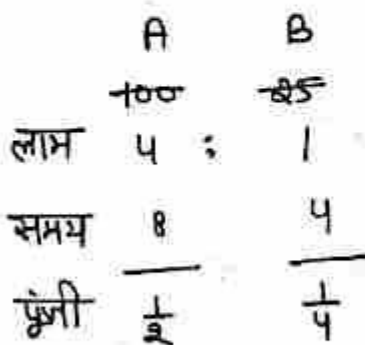 A B
100 25
लाभ 4 : 1
समय 8 4
पूंजी 1/2 1/4